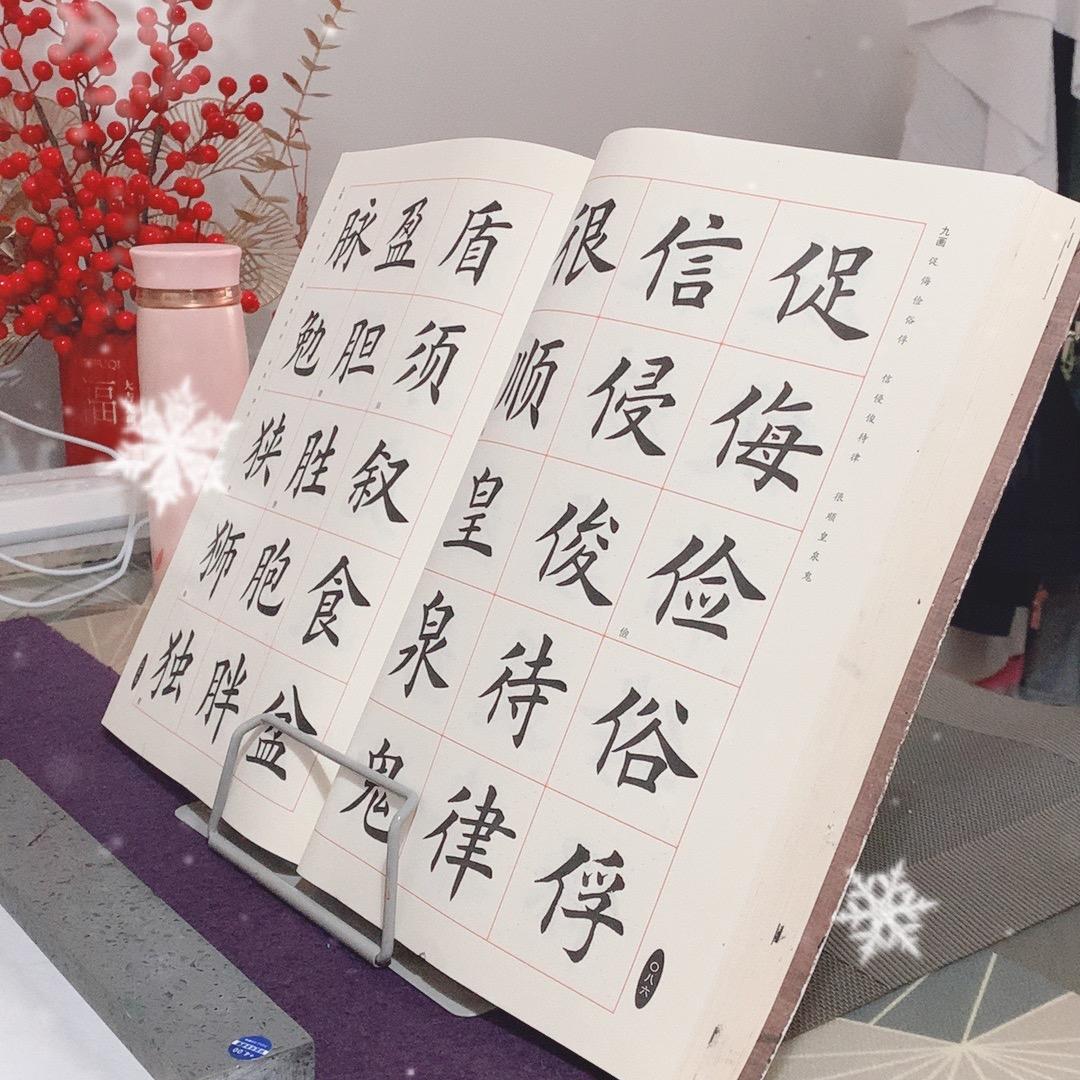 九画 促 侮 俭 俗 俘 信 侵 俊 待 律 很 顺 皇 泉 鬼
促 侮 俭 俗 俘
信 侵 俊 待 律
很 顺 皇 泉 鬼
儉
〇八六
盾 须 叙 食 盆
盈 胆 胜 胞 胖
脉 勉 狭 狮 独
福